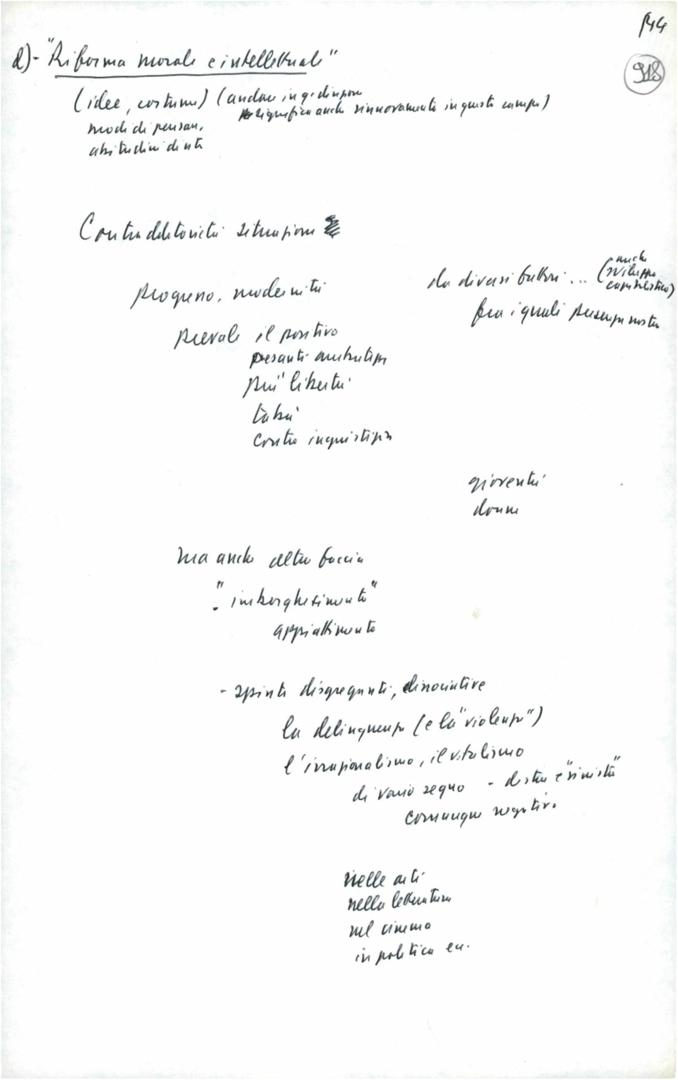 144
918
d) - "Riforma morale e intellettuale"
(idee, costumi) (andare in q. direzione
significa anche rinnovamento in questo campo)
modi di pensare,
abitudini di vita
Contraddittorietà situazione
progresso, modernità
da diversi fattori... (anche
sviluppo
capitalistico)
fra i quali presenza nostra
prevale il positivo
pesanti
più libertà
tabù
contro
gioventù
donne
ma anche altra faccia
- "imborghesimento"
appiattimento
- spinte disgreganti, dissociative
la delinquenza (e la "violenza")
l'irrazionalismo, il vitalismo
di vario segno - destra e "sinistra"
comunque negativi
nelle arti
nella letteratura
nel cinema
in politica ecc.